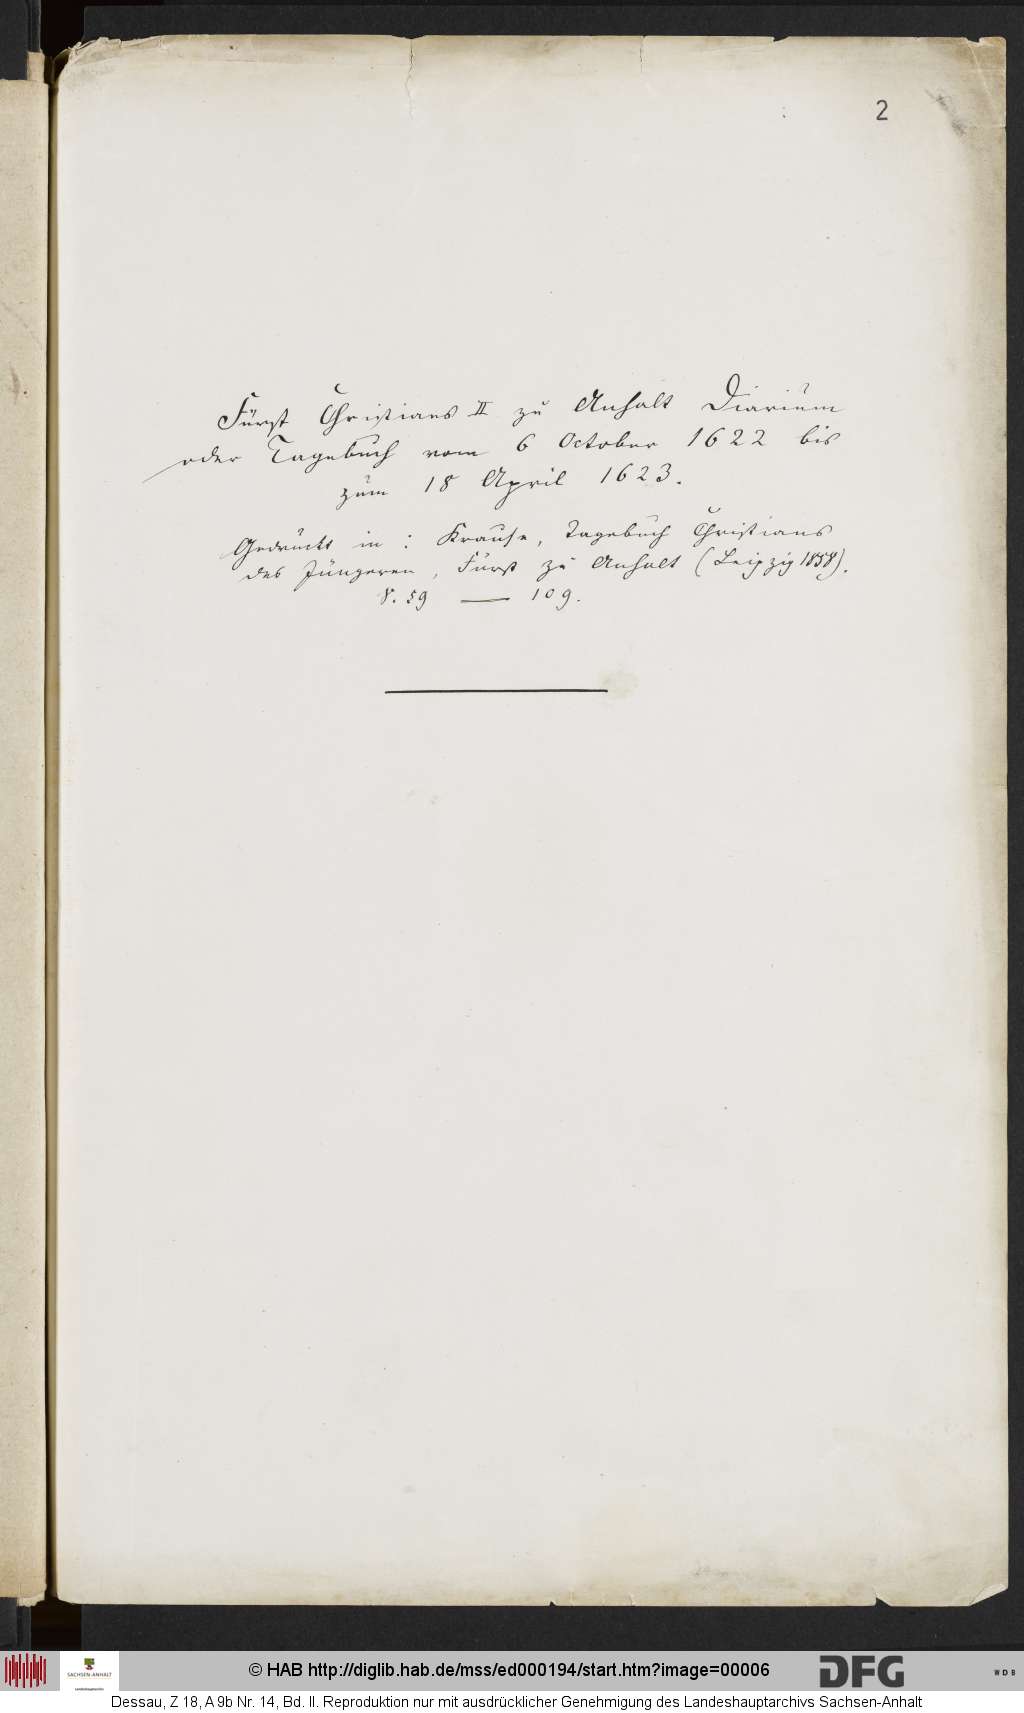 2
Fürst Christians II zu Anhalt Diarium
oder Tagebuch vom 6 October 1622 bis
zum 18 April 1623.
Gedruckt in: Krause, Tagebuch Christians
des Jüngeren, Fürst zu Anhalt (Leipzig 1858).
S. 59 — 109.
SACHSEN-ANHALT
Landeshauptarchiv
© HAB http://diglib.hab.de/mss/ed000194/start.htm?image=00006
DFG
WDB
Dessau, Z 18, A 9b Nr. 14, Bd. II. Reproduktion nur mit ausdrücklicher Genehmigung des Landeshauptarchivs Sachsen-Anhalt